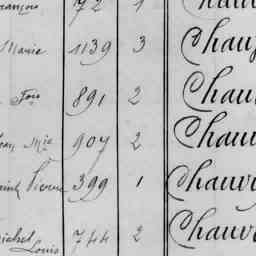 rançois 72 1
Marie 1139 3 Chau
Fois 891 2 Chau
ean Mie 907 2 Chau
aint Pierre 399 1 Chauv
ichel Louis 744 2 Chauv